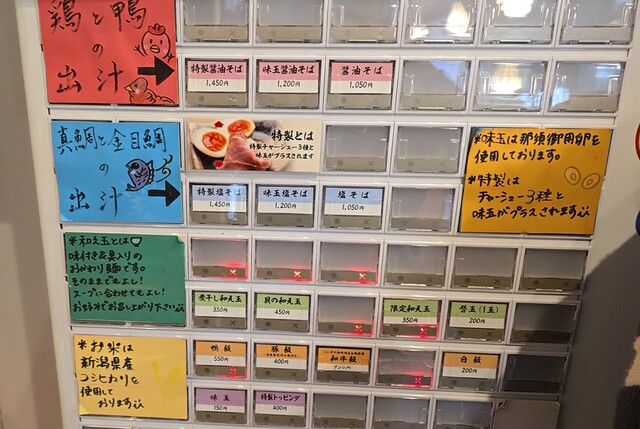 鶏と鴨
の
出汁
特製醤油そば
1,450円
味玉醤油そば
1,200円
醤油そば
1,050円
真鯛と金目鯛
の
出汁
特製とは
特製チャーシュー3種と
味玉がプラスされます
*味玉は那須御用卵を
使用しております。
*特製は
チャーシュー3種と
味玉がプラスされます
特製塩そば
1,450円
味玉塩そば
1,200円
塩そば
1,050円
*和え玉とは
味付き&具入りの
おかわり麺です。
そのままでもよし!
スープに合わせてもよし!
お好みでお召し上がり下さい
煮干し和え玉
350円
貝の和え玉
450円
限定和え玉
350円
替玉(1玉)
200円
*お米は
新潟県産
コシヒカリを
使用して
おります
鴨飯
550円
豚飯
400円
和牛飯
900円
白飯
200円
味玉
150円
特製トッピング
400円